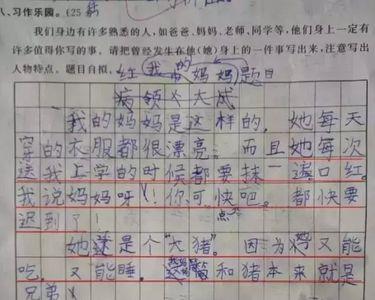 八、习作乐园。(25
我们身边有许多熟悉的人,如爸爸、妈妈、老师、同学等,他们身上一定有
许多值得你写的事。请把曾经发生在他(她)身上的一件事写出来,注意写出
人物特点。题目自拟。
红 我的妈妈题目
我的妈妈是这样的,她每天
穿的衣服都很漂亮。而且她每次
送我上学的时候都要抹一遍口红。
我说妈妈呀!你可快点吧。都快要
迟到了!
她还是个“大猪”。因为猪又能
吃。又能睡。和猪本来就是
兄弟!